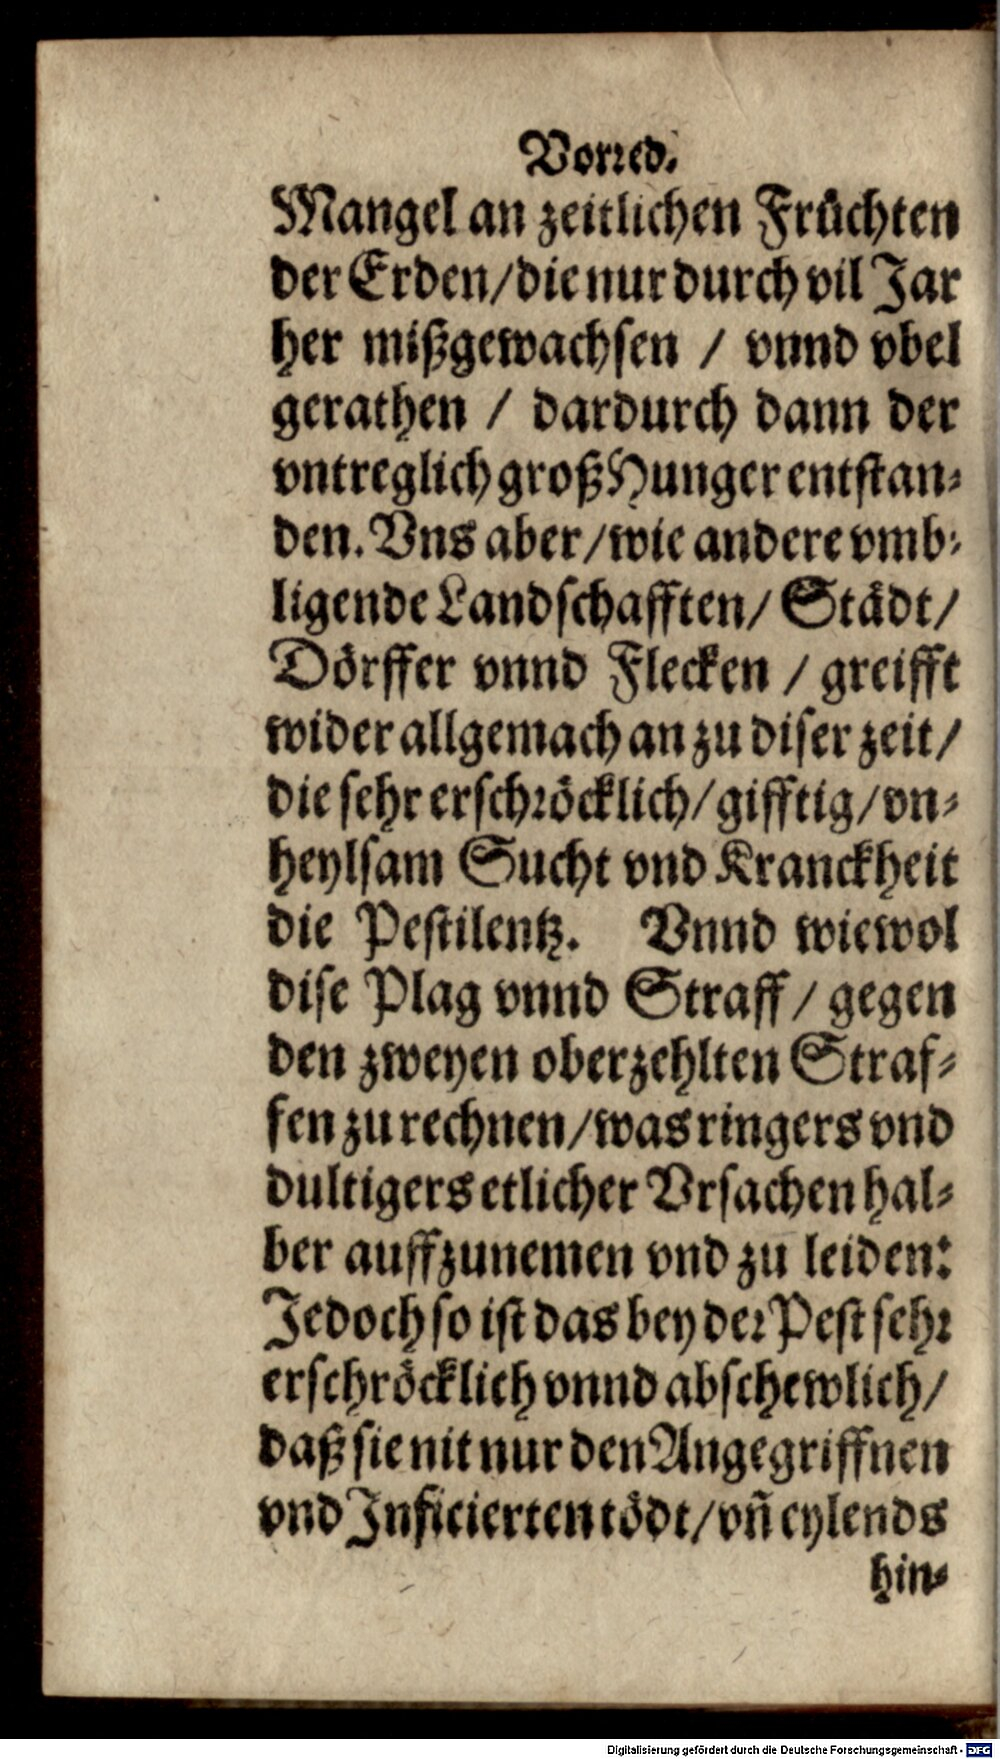 Vorred.
Mangel an zeitlichen Früchten
der Erden/die nur durch vil Jar
her mißgewachsen / vnnd vbel
gerathen / dardurch dann der
vntreglich groß Hunger entstan-
den. Vns aber/wie andere vmb-
ligende Landschafften/ Städt/
Dörffer vnnd Flecken / greifft
wider allgemach an zu diser zeit/
die sehr erschröcklich/gifftig/vn-
heylsam Sucht vnd Kranckheit
die Pestilentz. Vnnd wiewol
dise Plag vnnd Straff / gegen
den zweyen oberzehlten Straf-
fen zu rechnen/was ringers vnd
dultigers etlicher Vrsachen hal-
ber auffzunemen vnd zu leiden:
Jedoch so ist das bey der Pest sehr
erschröcklich vnnd abschewlich/
daß sie nit nur den Angegriffnen
vnd Inficierten tödt/vñ eylends
hin-
Digitalisierung gefördert durch die Deutsche Forschungsgemeinschaft - DFG